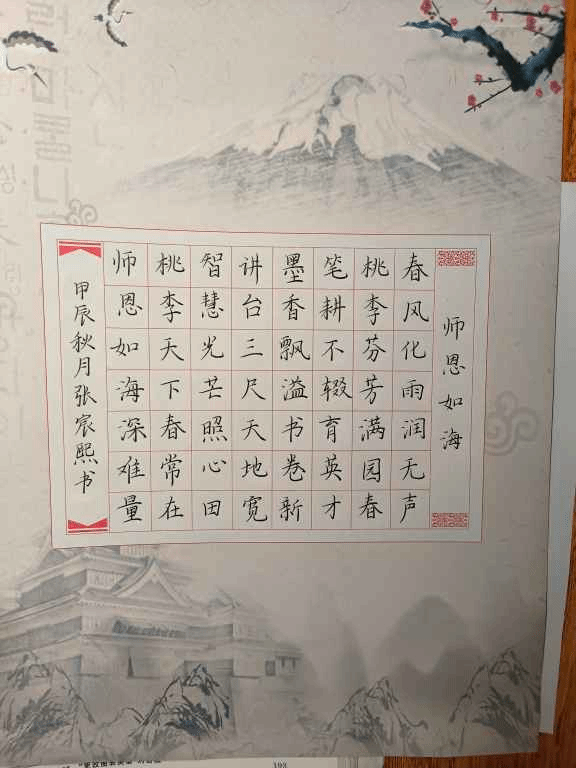 师恩如海
春风化雨润无声
桃李芬芳满园春
笔耕不辍育英才
墨香飘溢书卷新
讲台三尺天地宽
智慧光芒照心田
桃李天下春常在
师恩如海深难量
甲辰秋月张宸熙书
193